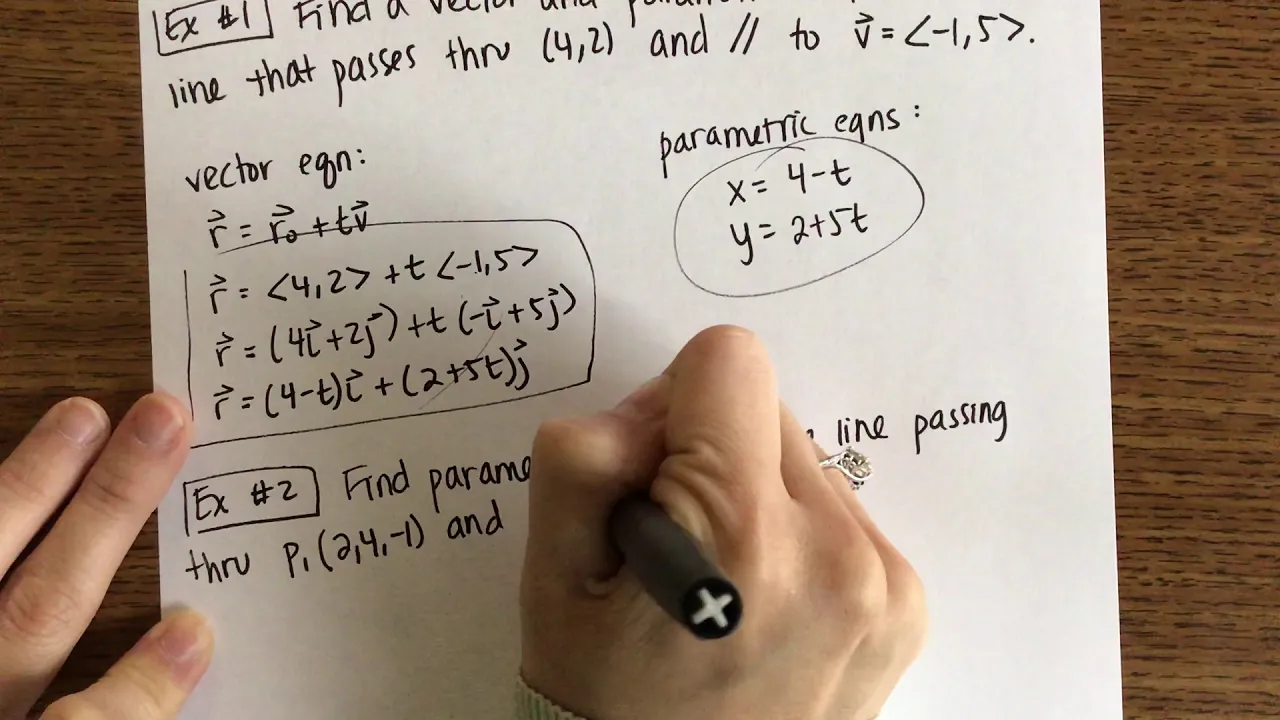 Ex #1 Find a vector and
line that passes thru (4,2) and // to v⃗ = <-1,5>.
vector eqn:
r⃗ = r⃗₀ + tv⃗
r⃗ = <4,2> + t <-1,5>
r⃗ = (4i⃗+2j⃗) + t (-i⃗+5j⃗)
r⃗ = (4-t)i⃗ + (2+5t)j⃗
parametric eqns:
x = 4-t
y = 2+5t
Ex #2 Find parame line passing
thru P₁(2,4,-1) and